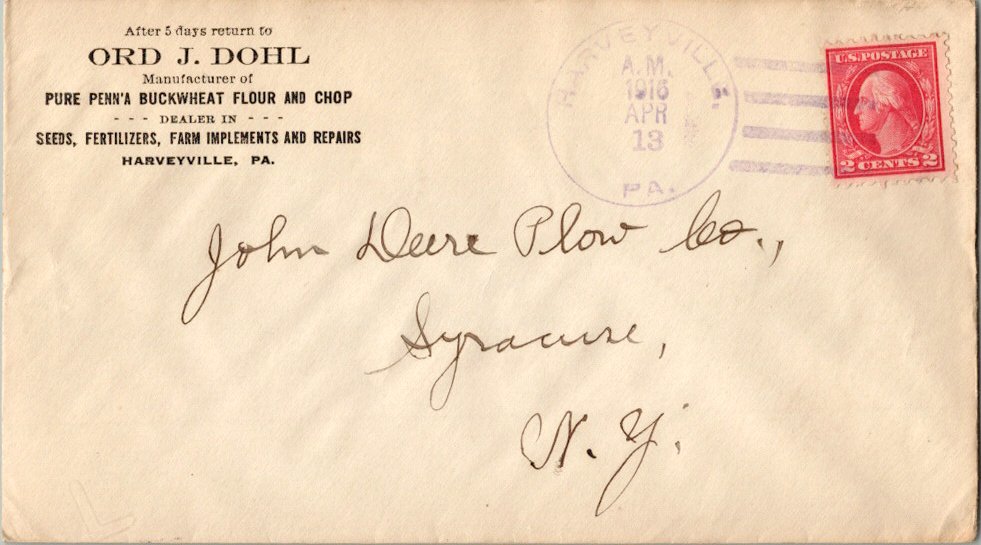 After 5 days return to
ORD J. DOHL
Manufacturer of
PURE PENN'A BUCKWHEAT FLOUR AND CHOP
- - - DEALER IN - - -
SEEDS, FERTILIZERS, FARM IMPLEMENTS AND REPAIRS
HARVEYVILLE, PA.
HARVEYVILLE,
A.M.
1916
APR
13
PA.
U.S. POSTAGE
2 CENTS 2
John Deere Plow Co.,
Syracuse,
N. Y.